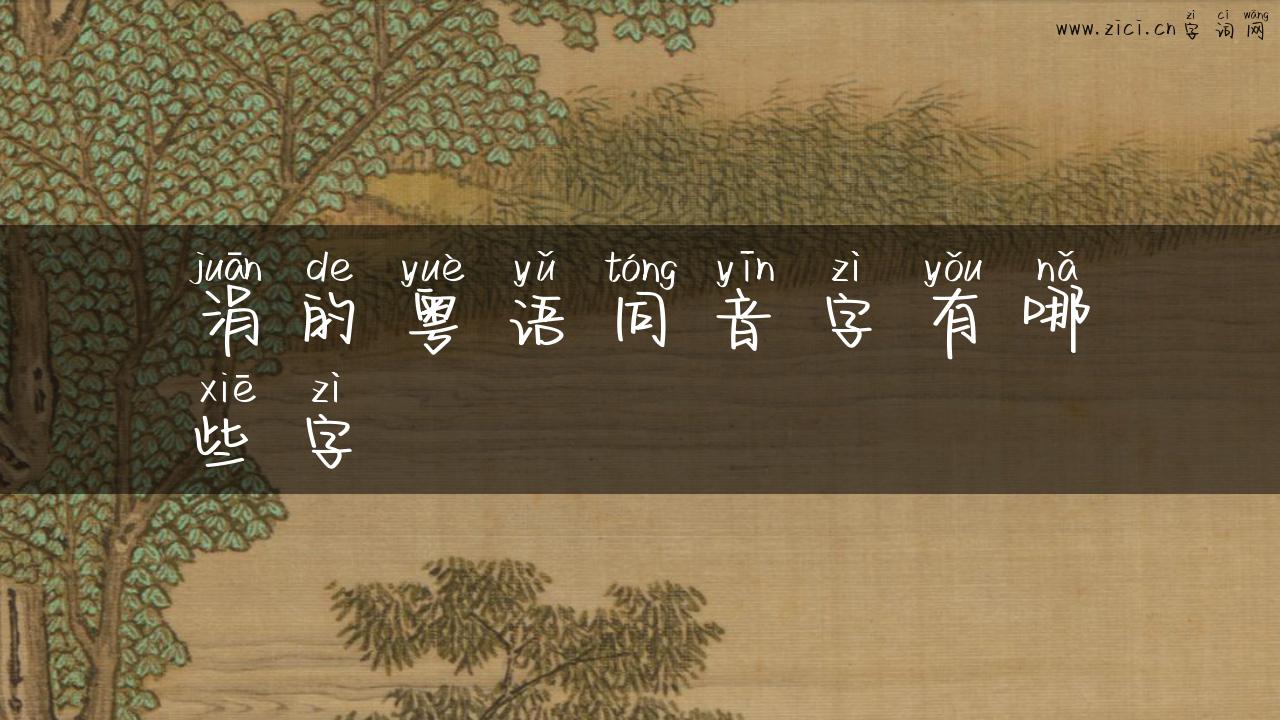 zì cí wǎng
www.zici.cn字词网
juān de yuè yǔ tóng yīn zì yǒu nǎ
涓的粤语同音字有哪
xiē zì
些字